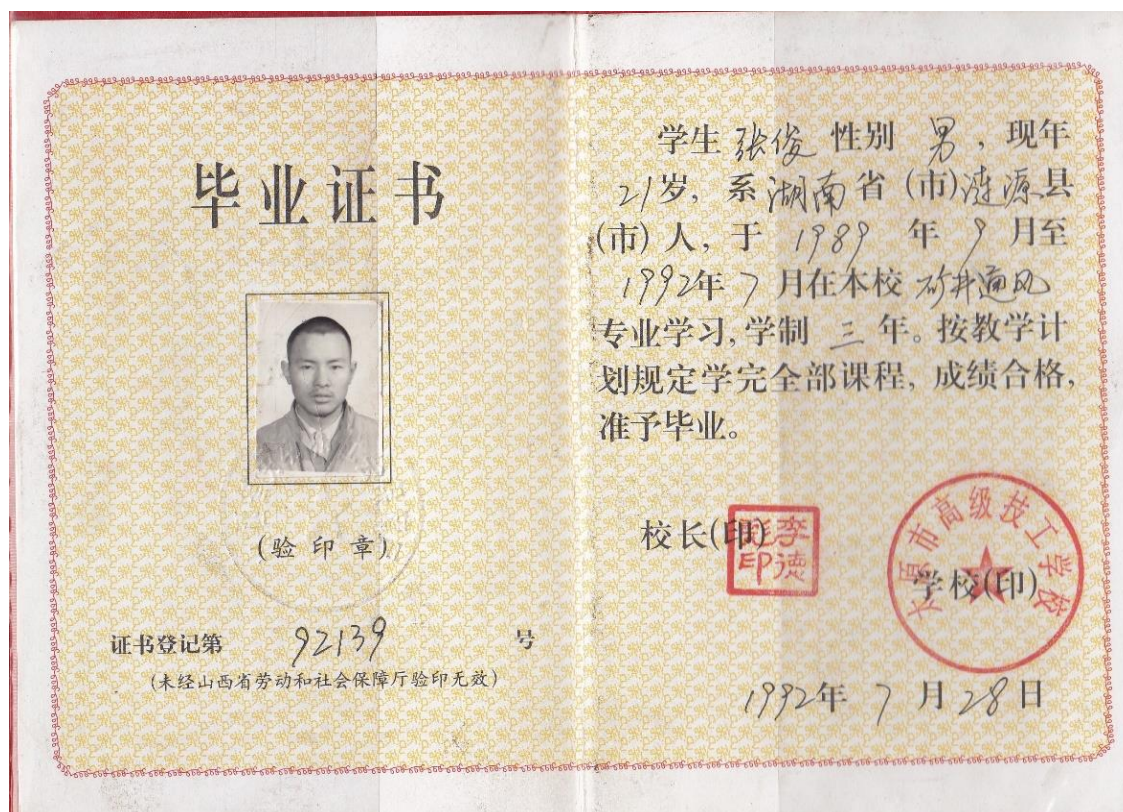 毕业证书
(验印章)
证书登记第 92139 号
(未经山西省劳动和社会保障厅验印无效)
学生 张俊 性别 男，现年
21岁，系湖南省(市)涟源县
(市)人，于 1989 年 9 月至
1992年 7 月在本校 矿井通风
专业学习，学制 三 年。按教学计
划规定学完全部课程，成绩合格，
准予毕业。
校长(印)
李德
印
太原市高级技工学校
学校(印)
1992年 7 月 28 日